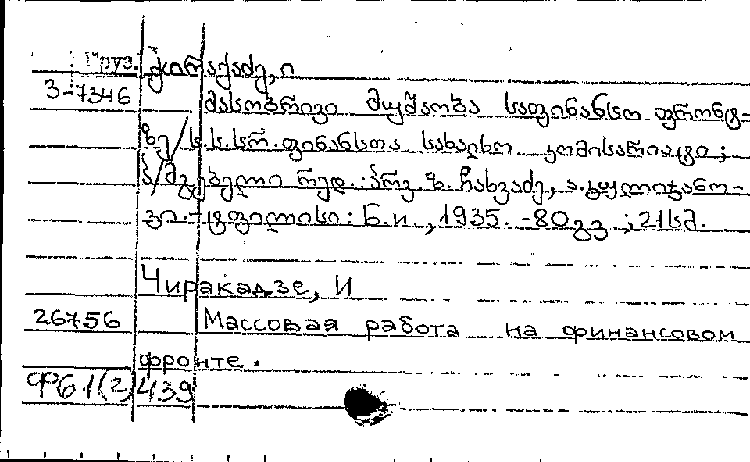 Груз. ჭირაქაძე, ი
3-7346 მასობრივი მუშაობა საფინანსო ფრონტ-
ზე/ ს.ს.ს.რ. ფინანსთა სახალხო კომისარიატი;
პ/მგებელი რედ.: პრ. ჩახვაძე, ა.
ვი. - ტფილისი: Б.и., 1935. - 80 გვ.; 21 სმ.
Чиракадзе, И
26756 Массовая работа на финансовом
фронте.
Ф61(2)439